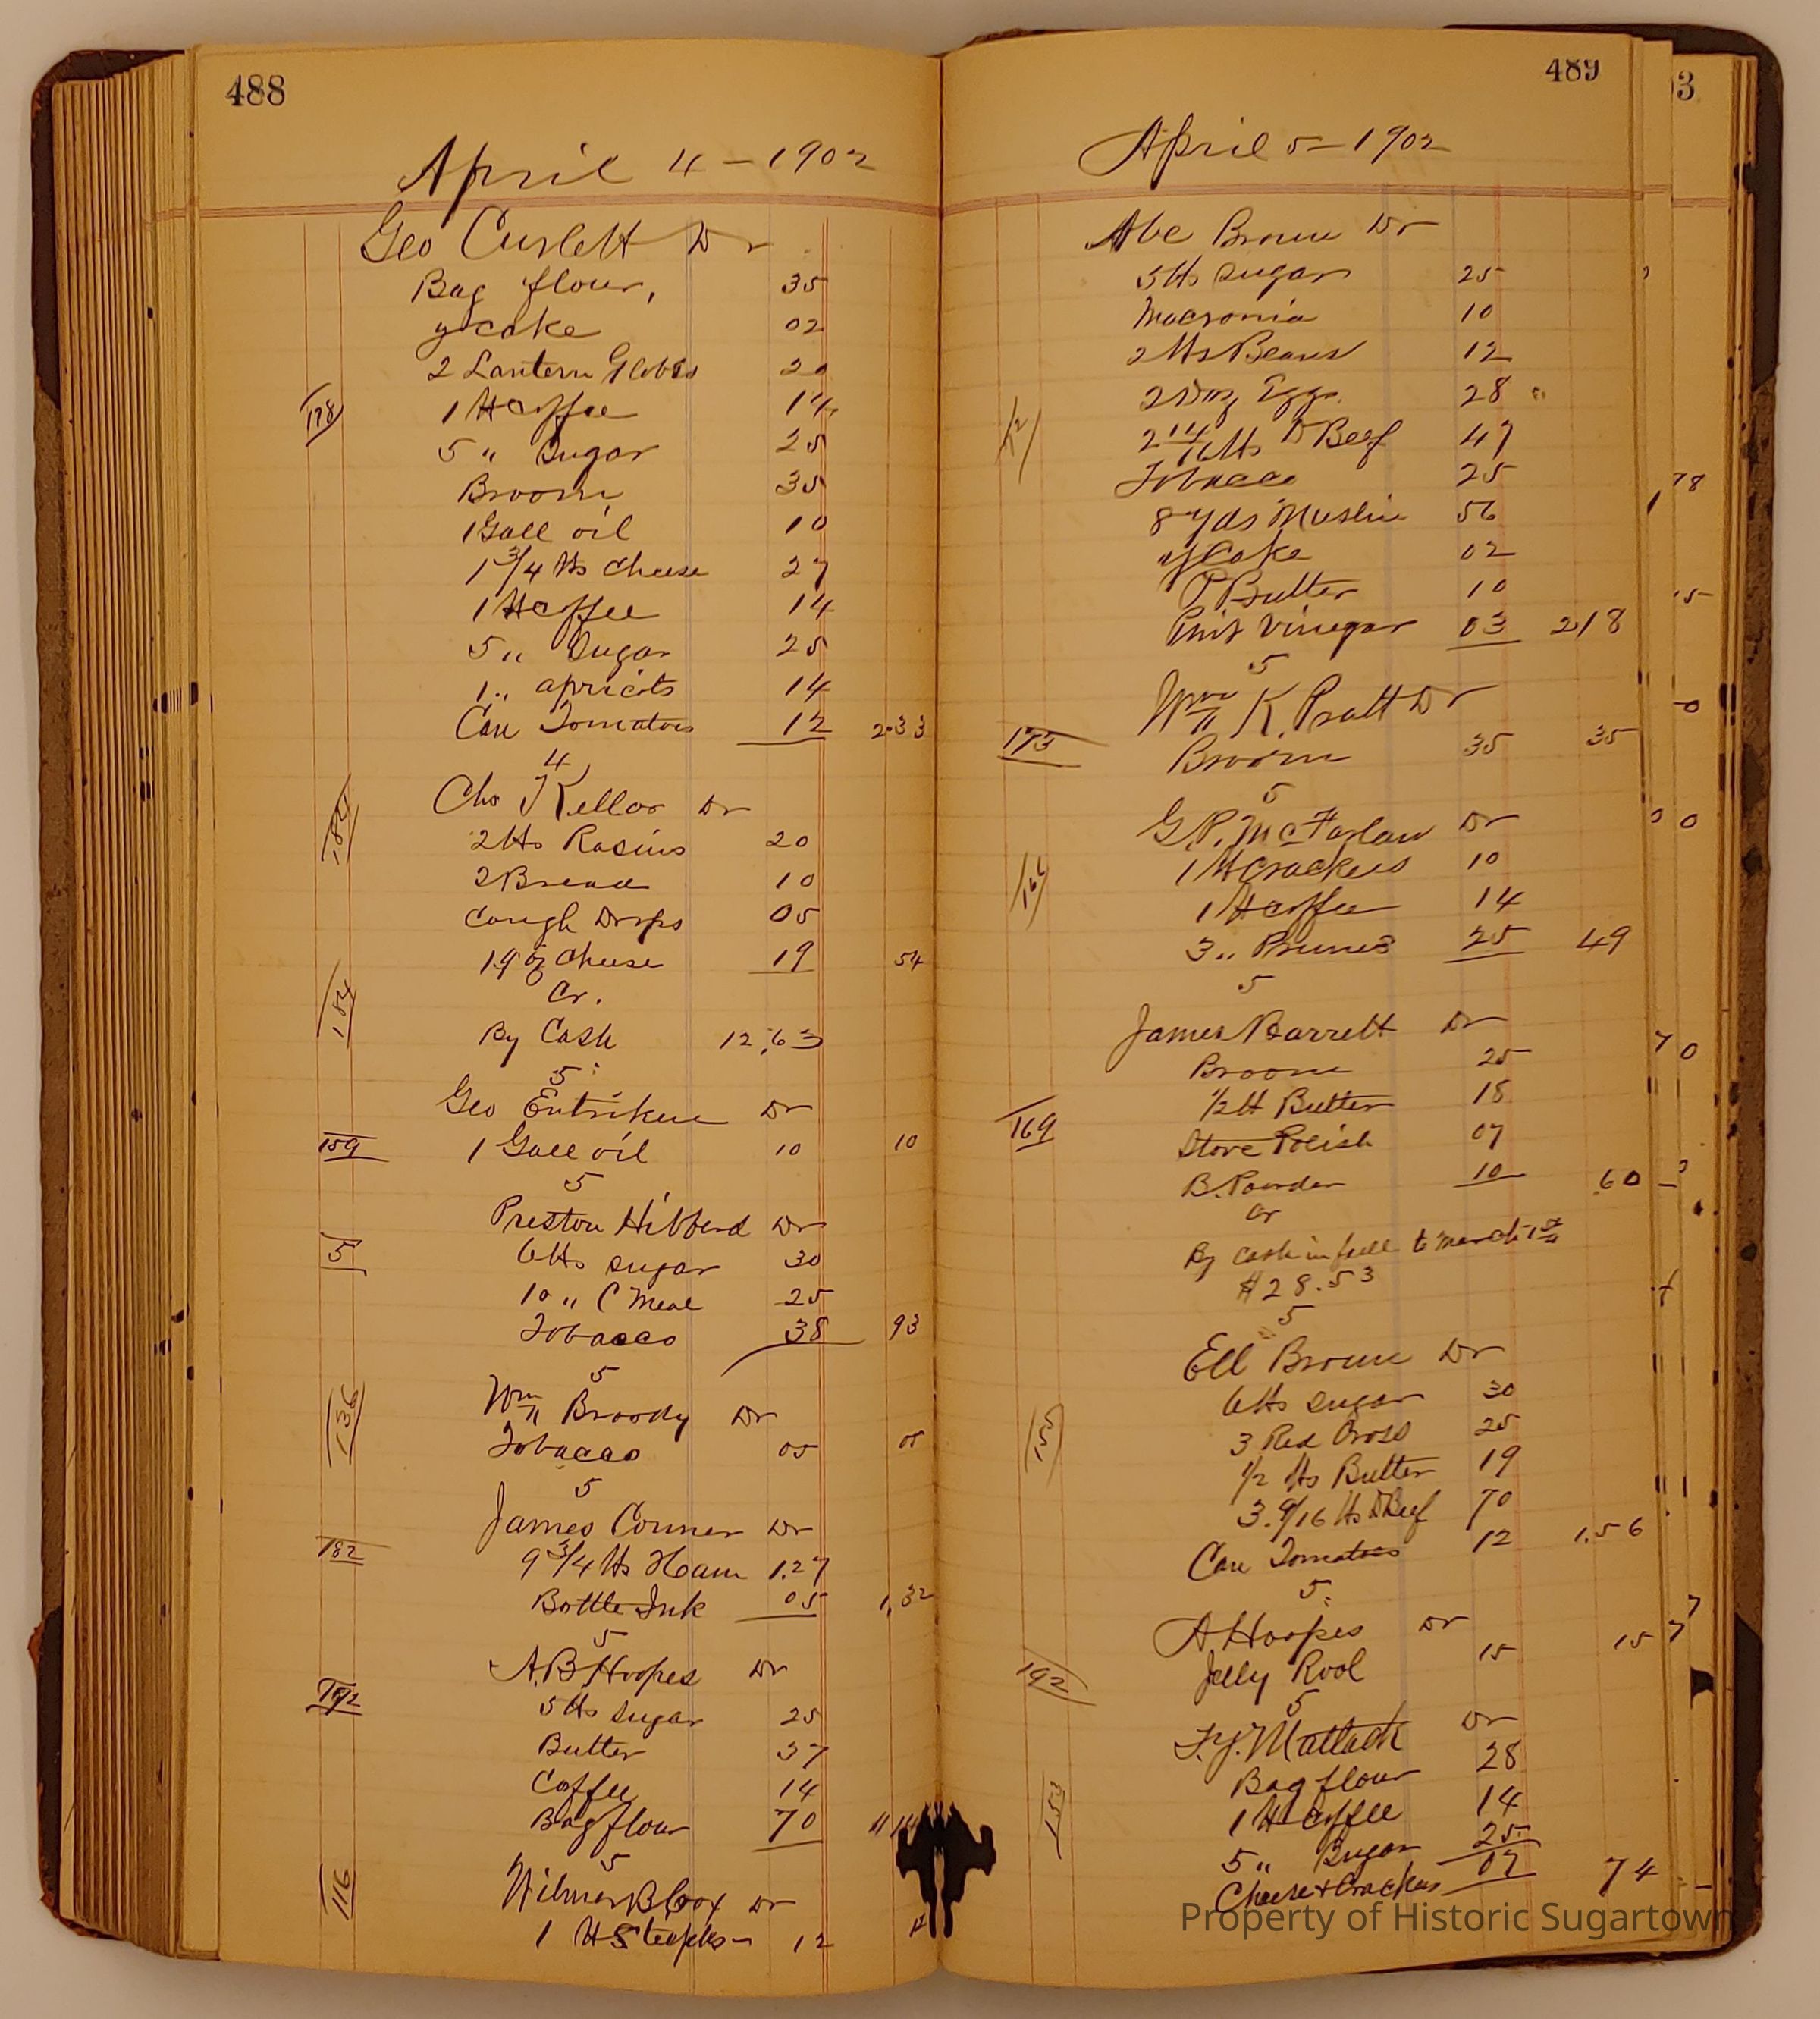 488
April 4 - 1902
Geo Curlett Dr
Bag flour, 35
y cake 02
2 Lantern Globes 20
178
1 lb coffee 14
5 " Sugar 25
Broom 35
1 Gall oil 10
1 3/4 lbs cheese 27
1 lb coffee 14
5 " Sugar 25
1 " apricots 14
Can Tomatoes 12 2.33
4
Chs Kellar Dr
184
2 lbs Rasins 20
2 Bread 10
Cough Drops 05
19 oz cheese 19 54
Cr.
184
By Cash 12.63
5
Geo Entriken Dr
159 1 Gall oil 10 10
5
Preston Hibberd Dr
5
6 lbs sugar 30
10 " C Meal 25
Tobacco 38 93
5
Wm Broody Dr
136
Tobacco 05 05
5
James Conner Dr
182 9 3/4 lbs Ham 1.27
Bottle Ink 05 1.32
5
A.B. Hoopes Dr
192
5 lbs sugar 25
Butter 37
Coffee 14
Bag flour 70
5
116
Wilmer B Cox Dr
1 lb Steaples 12
489
April 5 - 1902
Abe Brown Dr
5 lbs sugar 25
Macronia 10
2 lbs Beans 12
2 Doz Eggs 28
2 14/16 lbs D Beef 47
Tobacco 25
8 yds Muslin 56
y Cake 02
P Butter 10
Pint Vinegar 03 218
5
Wm K. Pratt Dr
173
Broom 35 35
5
G.P. McFarlan Dr
1 lb Crackers 10
1 lb coffee 14
3 " Prunes 25 49
5
James Barrett Dr
Broom 25
1/2 lb Butter 18
169
Stove Polish 07
B. Powder 10 .60
Cr
By cash in full to March 1st
$28.53
5
Ell Brown Dr
6 lbs sugar 30
150
3 Red Cross 25
1/2 lbs Butter 19
3.9/16 lbs D Beef 70
Can Tomatoes 12 1.56
5
A Hoopes Dr
192
Jelly Rool 15 15
5
F.J. Matlack Dr
153
Bag flour 28
1 lb coffee 14
5 " Sugar 25
Cheese + Crackers 07 74
Property of Historic Sugartown